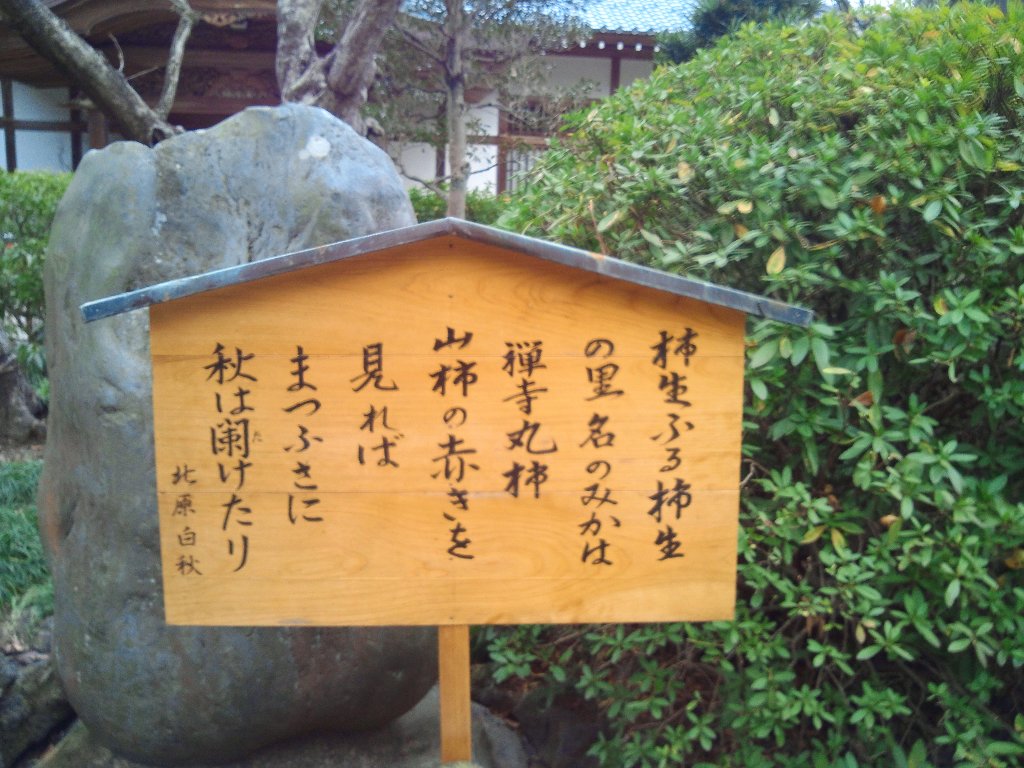 柿生ふる柿生
の里名のみかは
禅寺丸柿
山柿の赤きを
見れば
まつふさに
秋は闌けたり
た
北原白秋